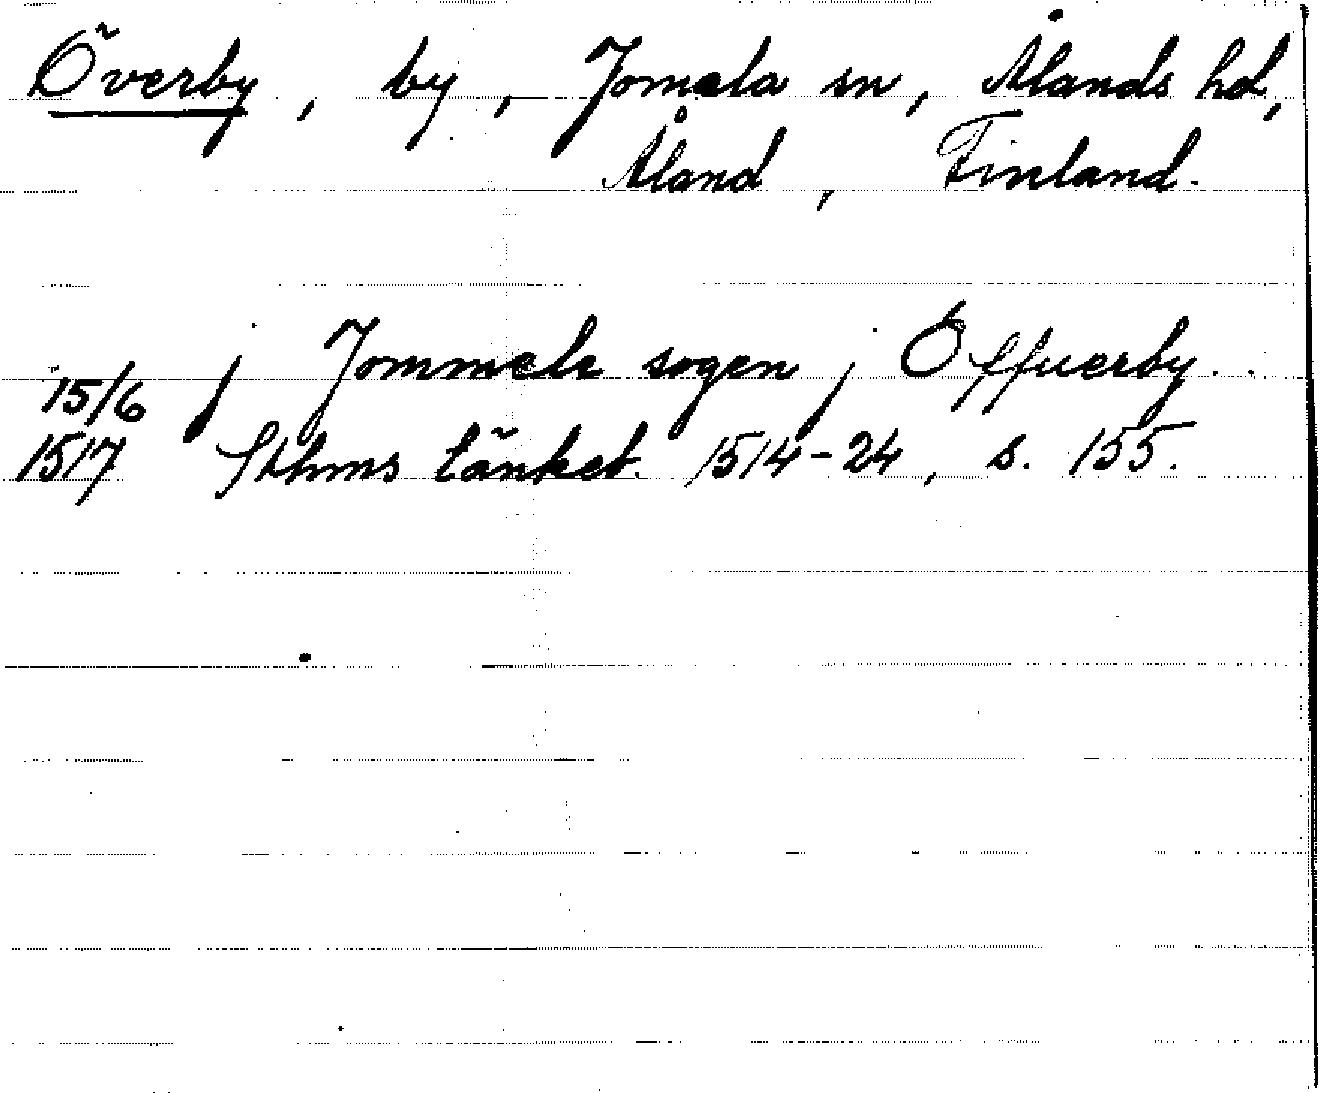 Överby, by, Jomala sn, Ålands hd,
Åland, Finland.
15/6 j Jommele sogen j Öffuerby.
1517 Sthms tänkeb. 1514-24, s. 155.